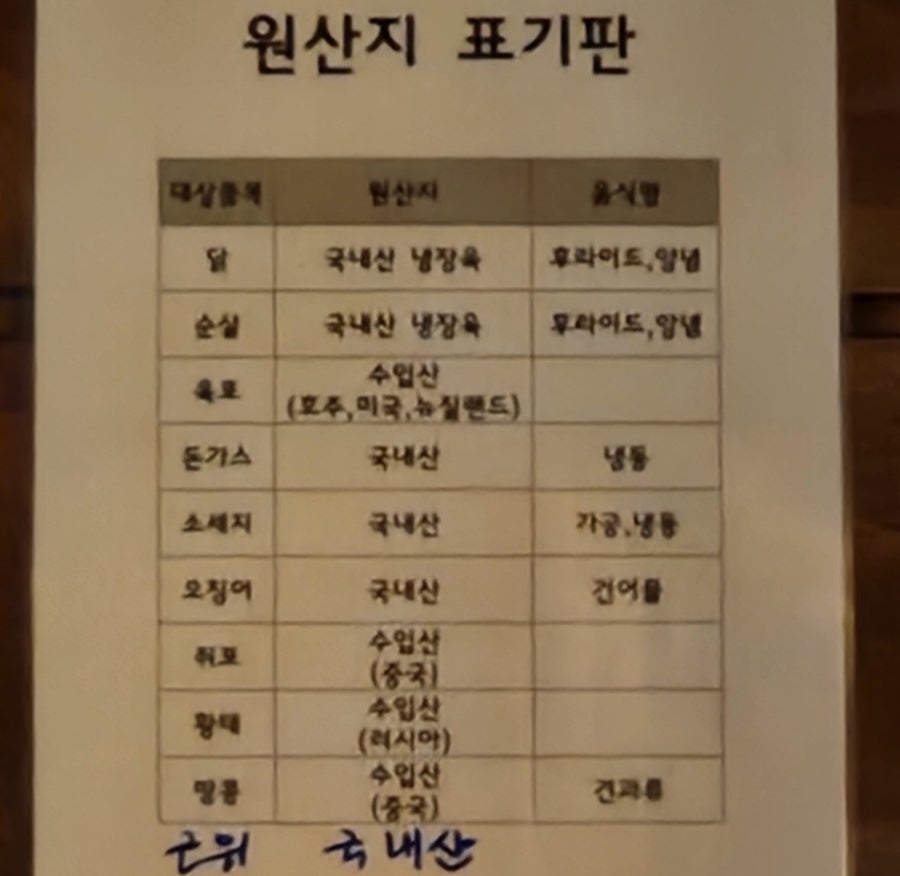 원산지 표기판
대상품목 원산지 음식명
닭 국내산 냉장육 후라이드,양념
순살 국내산 냉장육 후라이드,양념
육포 수입산
(호주,미국,뉴질랜드)
돈가스 국내산 냉동
소세지 국내산 가공,냉동
오징어 국내산 건어물
쥐포 수입산
(중국)
황태 수입산
(러시아)
땅콩 수입산
(중국) 견과류
국내산